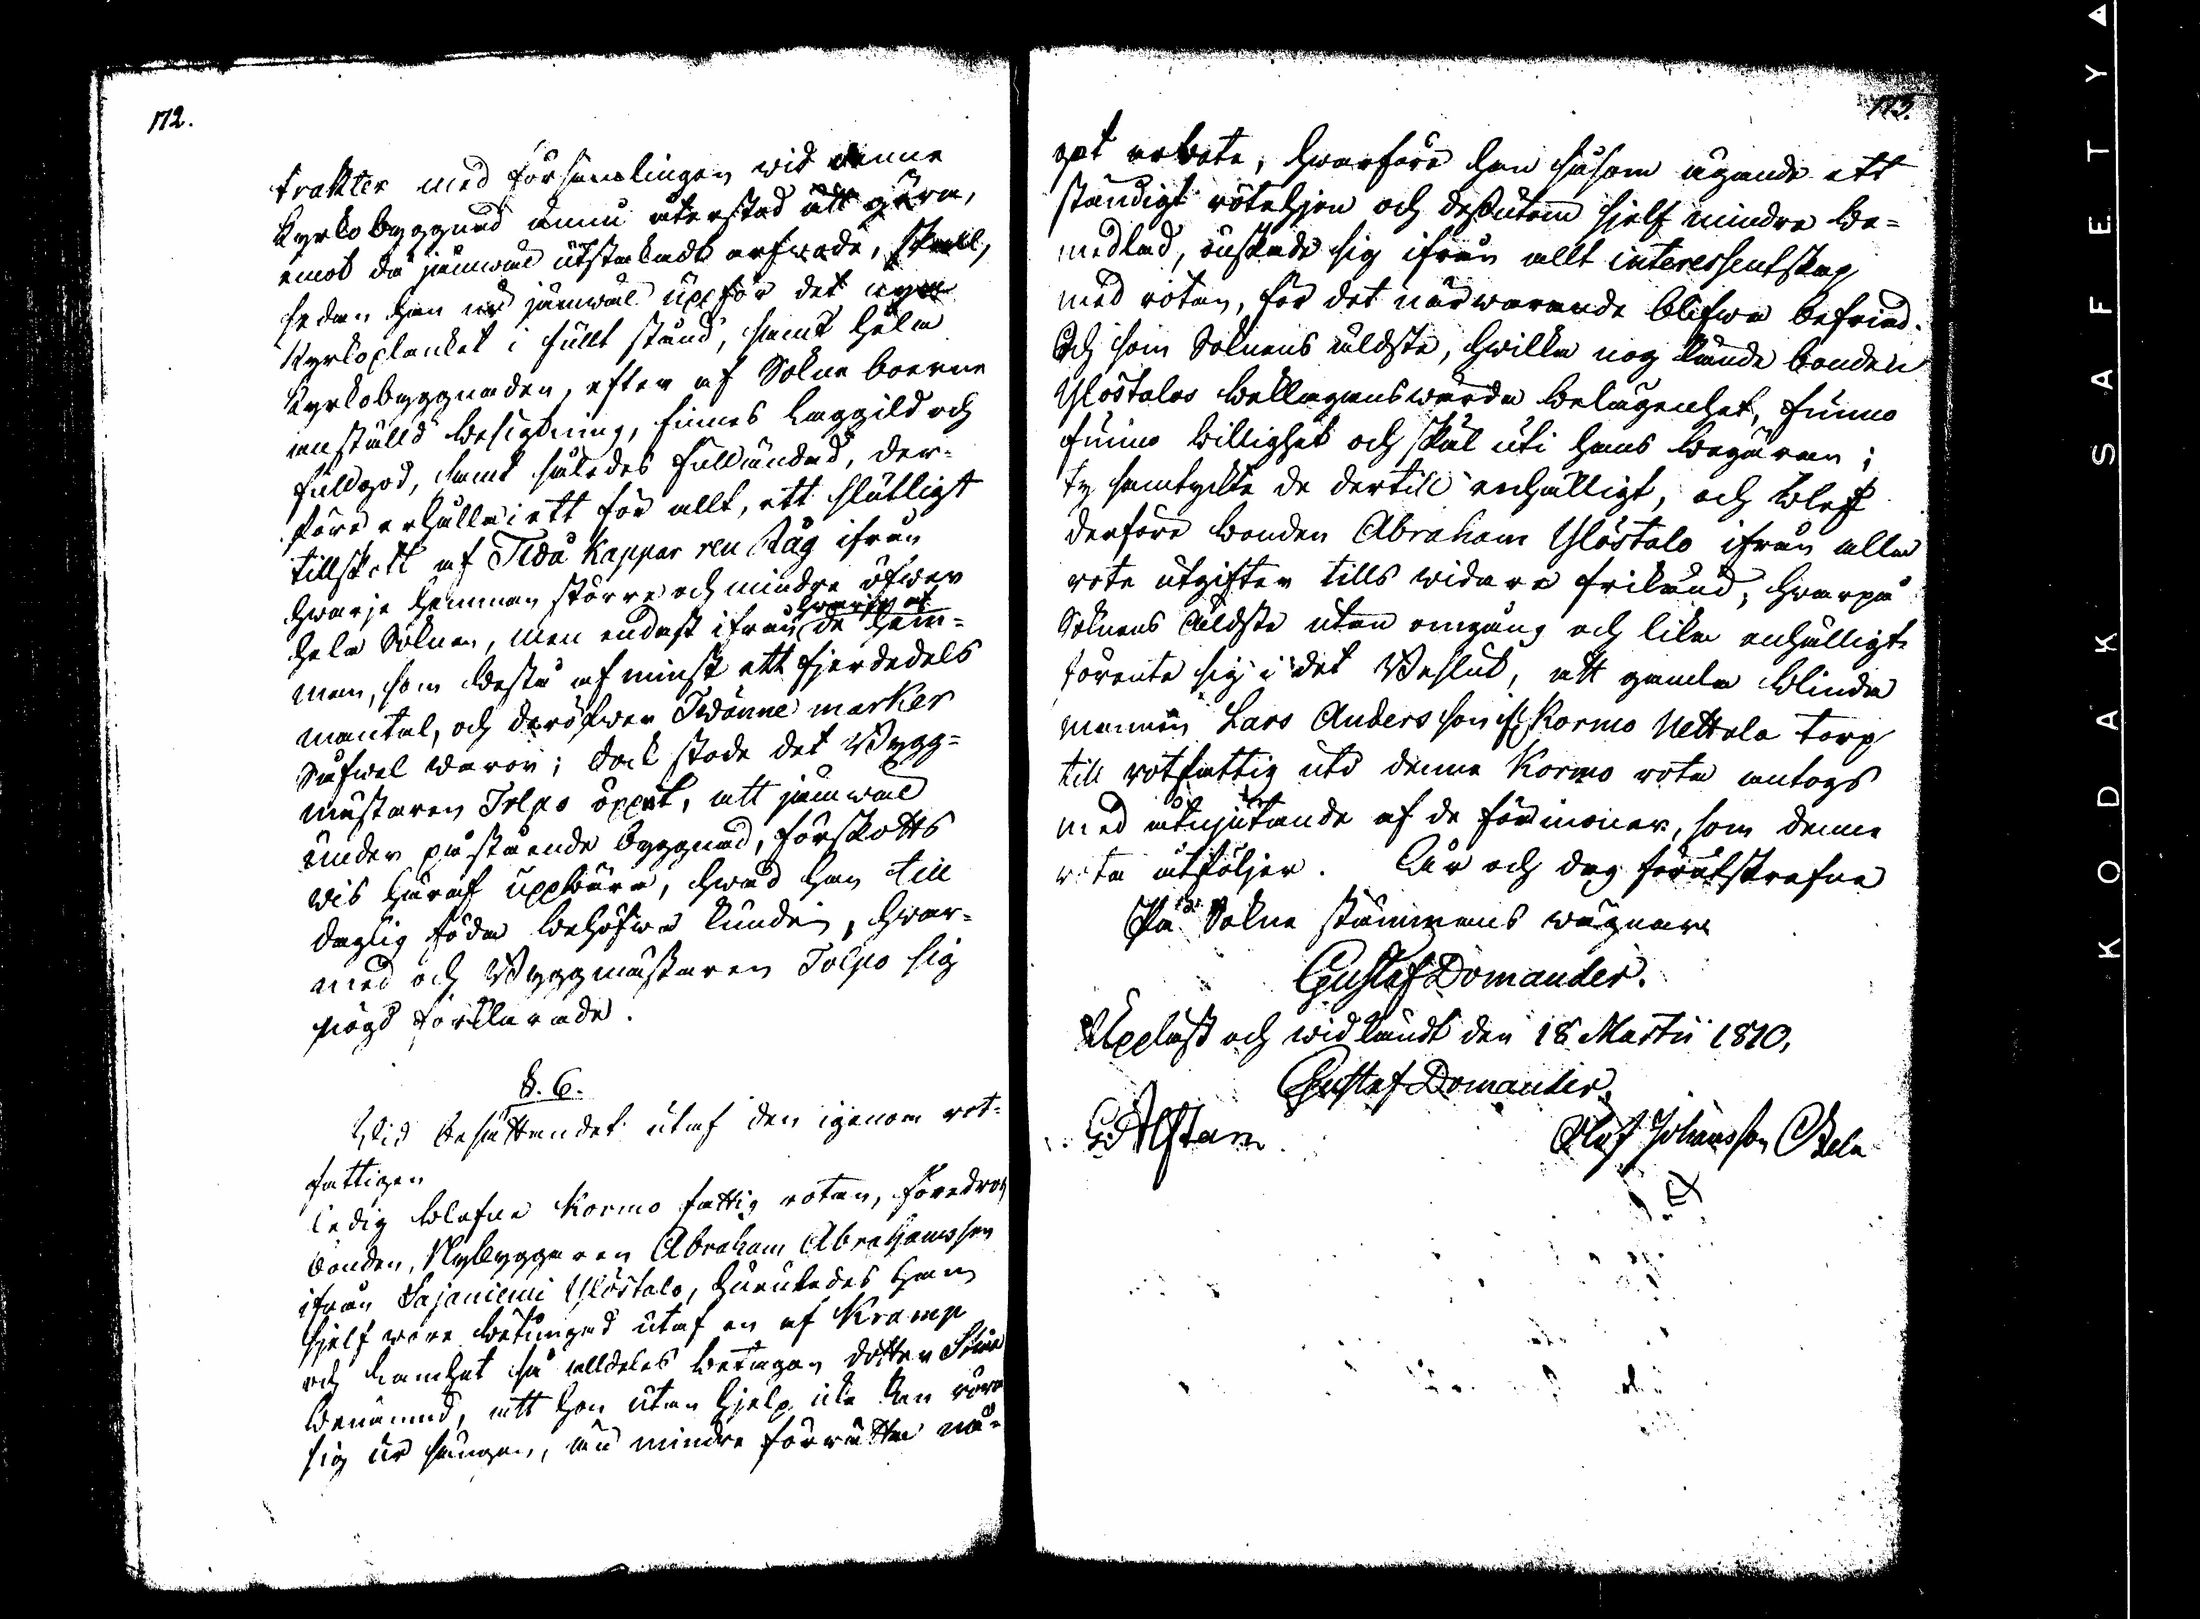 172.
trakten med församlingen wid denne
kyrkobyggnad ännu återstod att göra,
emot då jämwäl utstakadt arfwode, skall,
sedan han jämwäl uppför det nya
Kyrkoplanket i fullt stånd, samt hela
kyrkobyggnaden, efter af Sokne boerne
anställd besigtning, finnes laggild och
fullgod, samt således fulländad, der-
före erhålla i ett för allt, ett slutligt
tillskott af Tidå Kappar ren Råg ifrån
hwarje hemman större och mindre öfwer
hela Soknen, men endast ifrån hwarje af de hem-
man, som bestå af minst ett fjerdedels
mantal, och deröfwer Twänne marker
Sufwel waror; dock stode det Bygg-
mästaren Tolpo öppet, att jämwäl
under påstående byggnad, förskotts
wis häraf uppbära, hwad han till
daglig föda behöfwa kunde, hwar-
med och Byggmästaren Tolpo sig
nögd förklarade.
§. 6.
Wid besättandet utaf den igenom rot-
fattigen
ledig blefne Kormo fattig rotan, föredrog
bonden, Nybyggaren Abraham Abrahamsson
ifrån Sajaniemi Ylöstalo, huruledes han
sjelf wore betungad utaf en af Kramp
och lamhet så alldeles betagen dotter Stina
benämnd, att hon utan hjelp icke kan röra
sig ur sängen, än mindre förrätta nå-
173.
got arbete, hwarföre han såsom ägande ett
ständigt rotehjon och dessutom sjelf mindre be-
medlad, önskade sig ifrån allt interessentskap
med rotan, för det närwarande blifwa befriad.
Och som Soknens äldste, hwilka nog kände bonden
Ylöstalos beklagenswärda belägenhet, funno
funno billighet och skäl uti hans begäran;
ty samtyckte de dertill enhälligt, och blef
derföre bonden Abraham Ylöstalo ifrån alla
rote utgifter tills widare frikänd; hwarpå
Soknens äldste utan omgång och lika enhälligt
förente sig i det Beslut, att gamla blinda
mannen Lars Andersson ifr. Kormo Nettala torp
till rotfattig uti denne Kormo rota antogs
med åtnjutande af de förmoner, som denne
rota åtföljer. År och dag förutskrefne
På Sokne stämmans wägnar
Gustaf Domander.
Uppläst och widkändt den 18 Martii 1810,
Gustaf Domander.
G: Alstam
Olof Johansson Skela
KODAK SAFETY